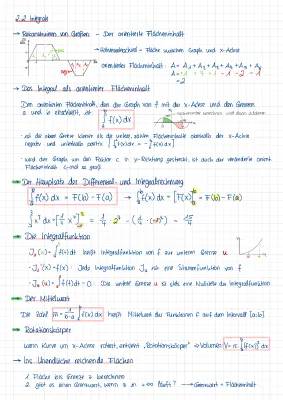 2.2 Integral
→ Rekonstruieren von Größen - Der orientierte Flächeninhalt
→ Fläche zwischen Graph und x-Achse
orientierter Flächeninhalt: A = A₁ + A₂ + A₃ + A₄ + A₅ + A₆
→ Das Integral als orientierter Flächeninhalt
Den orientierten Flächeninhalt, den der Graph von f mit der x-Achse und den Grenzen
a und b einschließt, ist ∫ f(x) dx
- ist die obere Grenze kleiner als die untere, zählen Flächeninhalte oberhalb der x-Achse
negativ und unterhalb positiv
- wird der Graph um den Faktor c in y-Richtung gestreckt, ist auch der orientierte
Flächeninhalt c-mal so groß
→ Der Hauptsatz der Differential- und Integralrechnung
∫ f(x) dx = F(b) - F(a) → ∫ f(x) dx = [F(x)] = F(b) - F(a)
→ Die Integralfunktion
Jᵤ(x) = ∫ f(t) dt heißt Integralfunktion von f zur unteren Grenze u
- Jᵤ'(x) = f(x) - Jede Integralfunktion Jᵤ ist eine Stammfunktion von f
- Jᵤ(u) = ∫ f(t) dt = 0 Die untere Grenze u ist stets eine Nullstelle der Integralfunktion
→ Der Mittelwert
Die Zahl m = 1/(b-a) ∫ f(x) dx heißt Mittelwert der Funktionen f auf dem Intervall [a;b]
→ Rotationskörper
Wenn Kurve um x-Achse rotiert, entsteht "Rotationskörper" → Volumen: V = π ∫ (f(x))² dx
→ Ins Unendliche reichende Flächen
1. Fläche bis Grenze z berechnen
2. gibt es einen Grenzwert, wenn z → +∞ läuft? → Grenzwert = Flächeninhalt